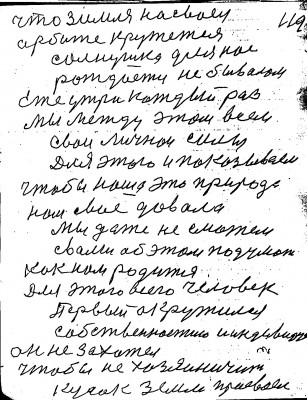 что земля на своей 119
арбите кружется
солнушка для нас
рождается небывалом
сте утри каждый раз
мы между этом всем
свои личной силы
Для этого и показываем
чтобы наша это природа
ном своё довала
мы даже не сможем
свами об этом подумат
как нам родится
Для этого всего человек
Первый окружился
собственностию и индивидо
он не захотел
чтобы не хозяиничит
кусок земли присвоел